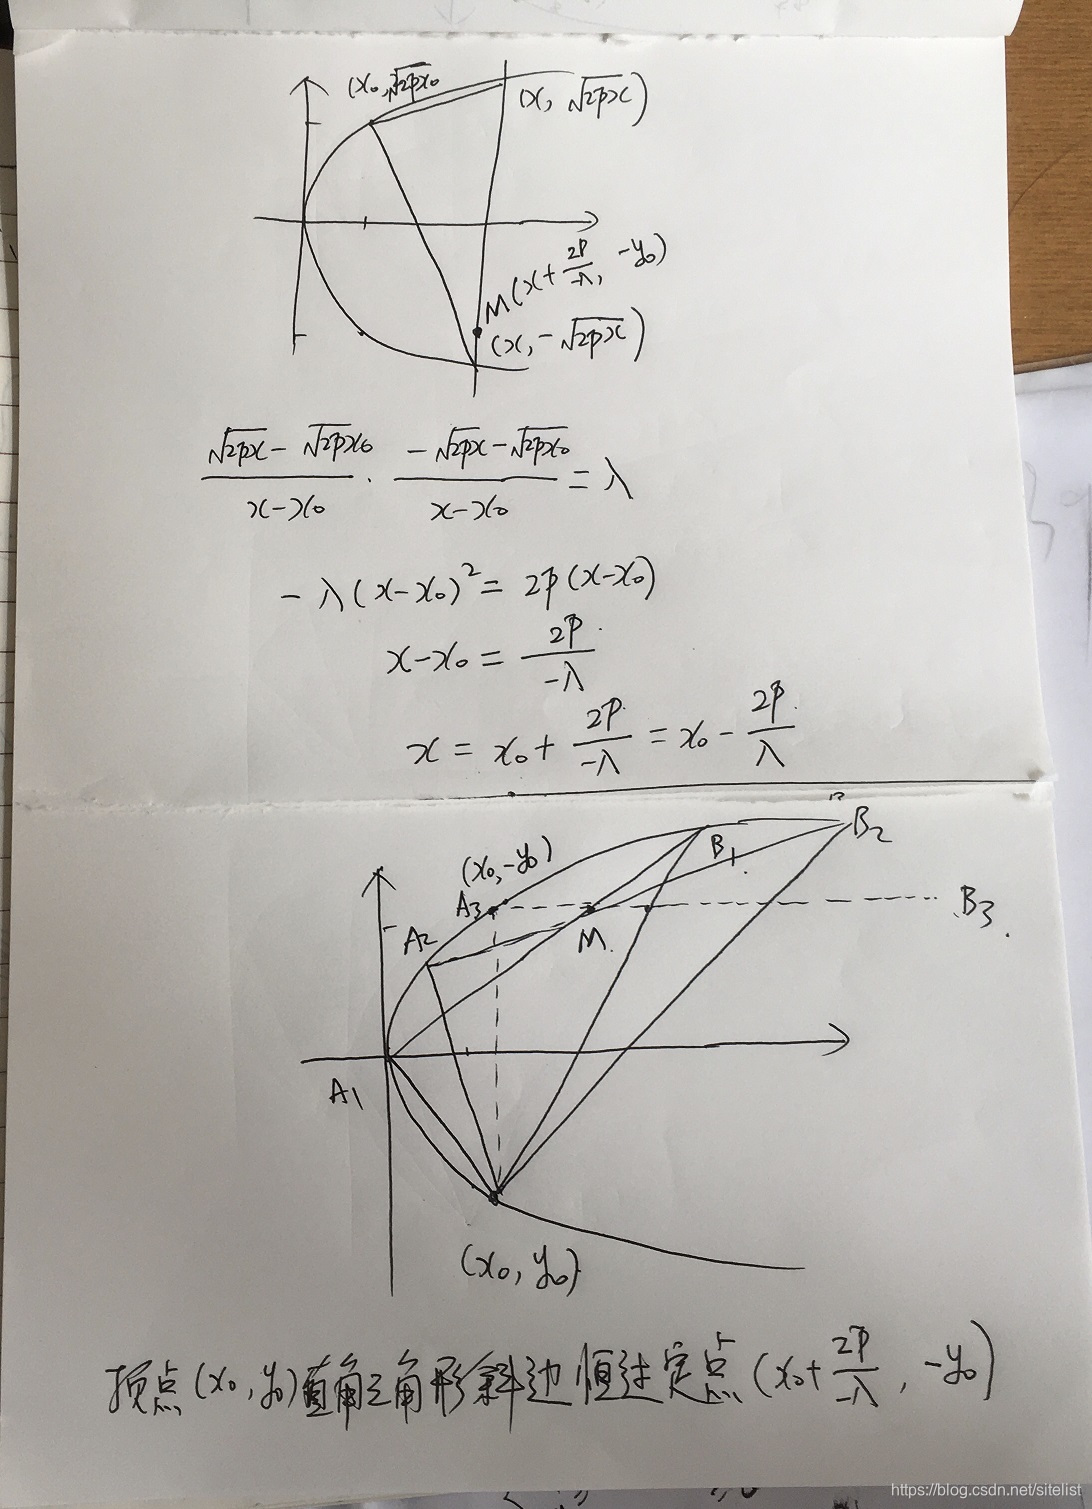 (x₀, √2px₀)
(x, √2px)
M(x+2p/-λ, -y₀)
(x, -√2px)
(√2px - √2px₀)/(x-x₀) · (-√2px - √2px₀)/(x-x₀) = λ
-λ(x-x₀)² = 2p(x-x₀)
x-x₀ = 2p/-λ
x = x₀ + 2p/-λ = x₀ - 2p/λ
B₂
(x₀, -y₀)
B₁
A₃
B₃
A₂
M
A₁
(x₀, y₀)
顶点(x₀, y₀)直角三角形斜边恒过定点(x₀+2p/-λ, -y₀)
https://blog.csdn.net/sitelist